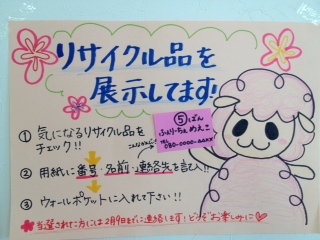 リサイクル品を
展示してます!
① 気になるリサイクル品を
チェック!!
⑤ばん
ふぇりーちぇ めえこ
TEL
080-0000-△△××
② 用紙に番号・名前・連絡先を記入!!
③ ウォールポケットに入れて下さい!!
当選された方には2月9日までに連絡します!どうぞお楽しみに